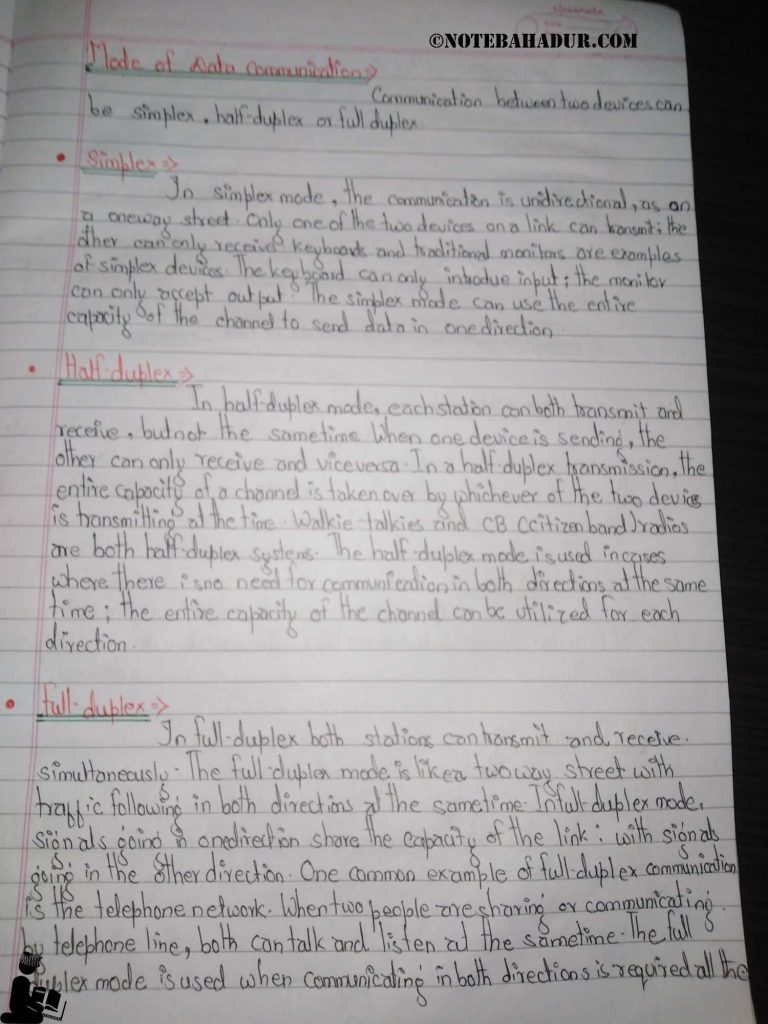 ©NOTEBAHADUR.COM
Mode of Data Communication⇒
Communication between two devices can
be simplex, half-duplex or full duplex.
• Simplex⇒
In simplex mode, the communication is unidirectional, as on
a oneway street. Only one of the two devices on a link can transmit; the
other can only receive keyboards and traditional monitors are examples
of simplex devices. The keyboard can only introdue input; the monitor
can only accept output. The simplex mode can use the entire
capacity of the channel to send data in one direction.
• Half-duplex⇒
In half-duplex mode, each station can both transmit and
receive, but not the sametime. When one device is sending, the
other can only receive and viceversa. In a half duplex transmission, the
entire capacity of a channel is taken over by whichever of the two devices
is transmitting at the time. Walkie-talkies and CB (citizen band) radios
are both half-duplex systems. The half-duplex mode is used in cases
where there is no need for communication in both directions at the same
time; the entire capacity of the channel can be utilized for each
direction.
• full-duplex⇒
In full-duplex both stations can transmit and receive.
simultaneously. The full-duplex mode is like a two way street with
traffic following in both directions at the sametime. In full-duplex mode,
signals going in one direction share the capacity of the link: with signals
going in the other direction. One common example of full-duplex communication
is the telephone network. When two people are sharing or communicating
by telephone line, both can talk and listen at the sametime. The full
duplex mode is used when communicating in both directions is required all the